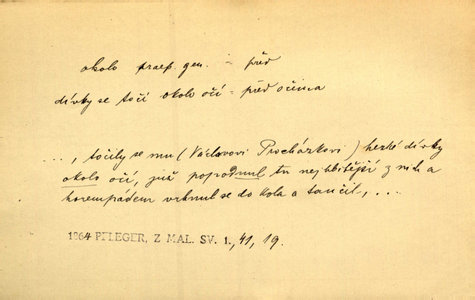 okolo praep. gen. = před
dívky se točí okolo očí = před očima
..., točily se mu (Václavovi Procházkovi) hezké dívky
okolo očí, již popadnul tu nejhbitější z nich a
horempádem vrhnul se do kola a tančil, ...
1864 PFLEGER, Z MAL. SV. 1., 41, 19.